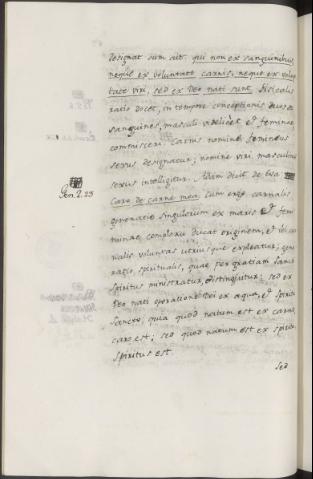 designat cum ait, qui non ex sanguinibus,
neque ex voluntate carnis, neque ex volun
tate viri, sed ex Deo nati sunt. Physicalis
ratio docet, in tempore conceptionis duos
sanguines, masculi videlicet et feminae
commisceri. Carnis nomine femineus
sexus designatur; nomine viri, masculinus
sexus intelligitur. Adam dicit de Eva
Gen. 2. 23
Caro de carne mea. Cum ergo carnalis
generatio singulorum ex maris et fem
minae complexu ducat originem, et ibi car
nalis voluntas utriusque expleatur; gene
ratio, spiritualis, quae per gratiam Sancti
Spiritus ministratur, distinguitur; sed ex
Deo nati operatione Dei ex aqua, et Spiritu
Sancto, quia quod natum est ex carne,
caro est; sed quod natum est ex spiritu,
Spiritus est.
Sed